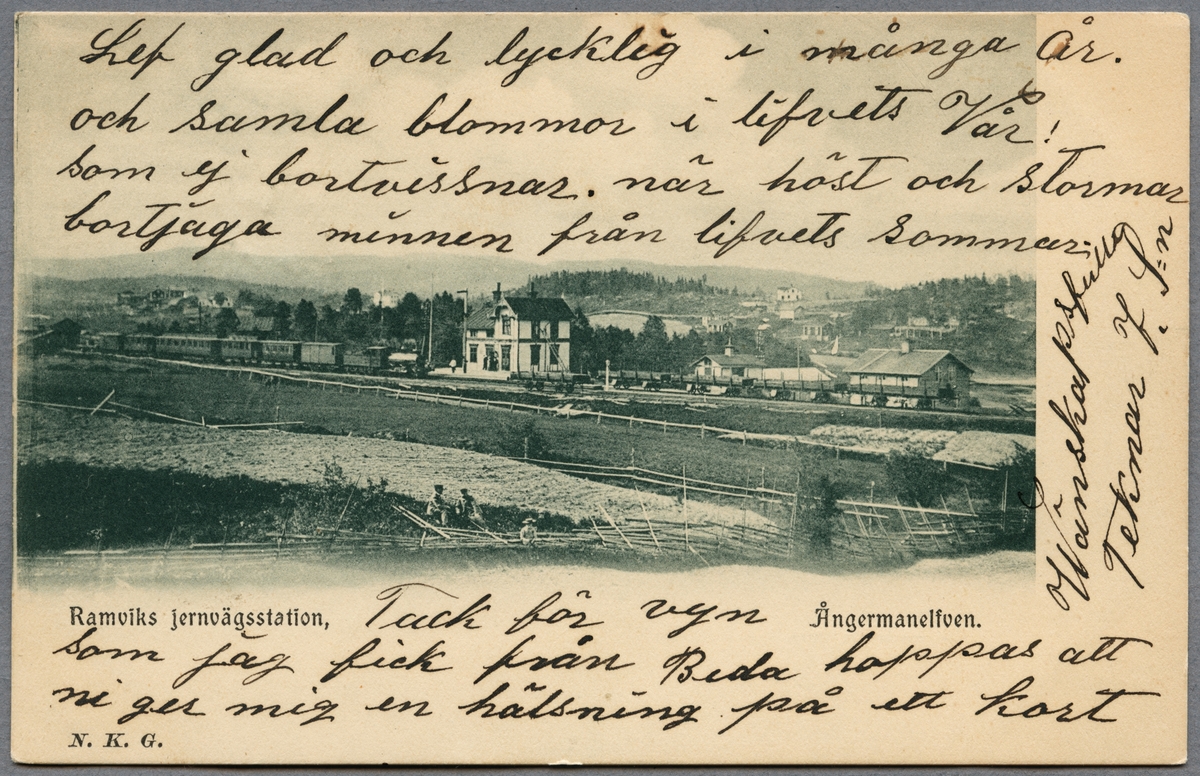 Lef glad och lycklig i många År.
och samla blommor i lifvets Vår!
som ej bortvissnar. når höst och stormar
bortjaga minnen från lifvets sommar.
Wänskapsfullt
Teknar J. S=n
Ramviks jernvägsstation, Tack för vyn Ångermanelfven.
som jag fick från Beda hoppas att
ni ger mig en hälsning på ett kort
N. K. G.